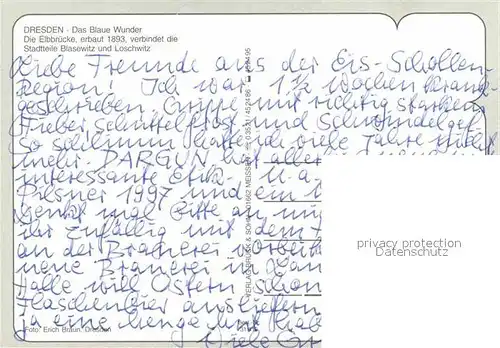 DRESDEN - Das Blaue Wunder
Die Elbbrücke, erbaut 1893, verbindet die
Stadtteile Blasewitz und Loschwitz
Liebe Freunde aus der Eis-Schollen-
region! Ich war 1 1/2 Wochen krank-
geschrieben, Grippe mit richtig starkem
Fieber Schüttelfrost und Schwindelgef
So schlimm hatte ich viele Jahre nicht
mehr. DARGUN hat aller
interessante Etik. u.a.
Pilsner 1997 und ein
denkt mal bitte an
ihr zufällig mit dem
an der Brauerei vorbei
neue Brauerei in
Halle will Ostern schon
Flaschenbier ausliefern
ja eine Menge und
Viele
privacy protection
Datenschutz
VERLAG BRÜCK & SOHN · 01662 MEISSEN
Foto: Erich Braun, Dresden